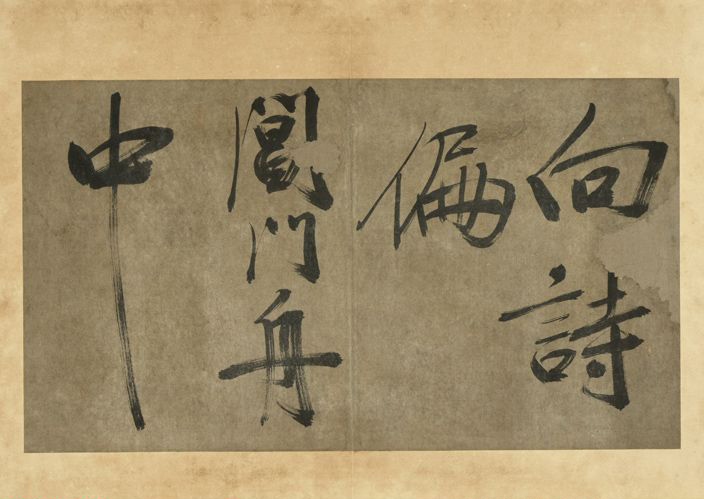 向詩
偏
閶門舟
中